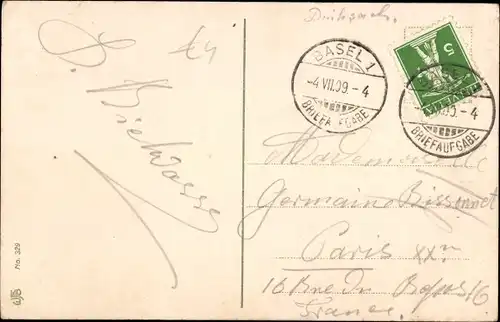 Drucksache.
BASEL 1
-4 VII.09.-4
BRIEFAUFGABE
5
HELVETIA
BASEL 1
VII.09.-4
BRIEFAUFGABE
Mademoiselle
Germaine Bissonnet
Paris XXm
16 Rue du Repos 16
France
No. 329